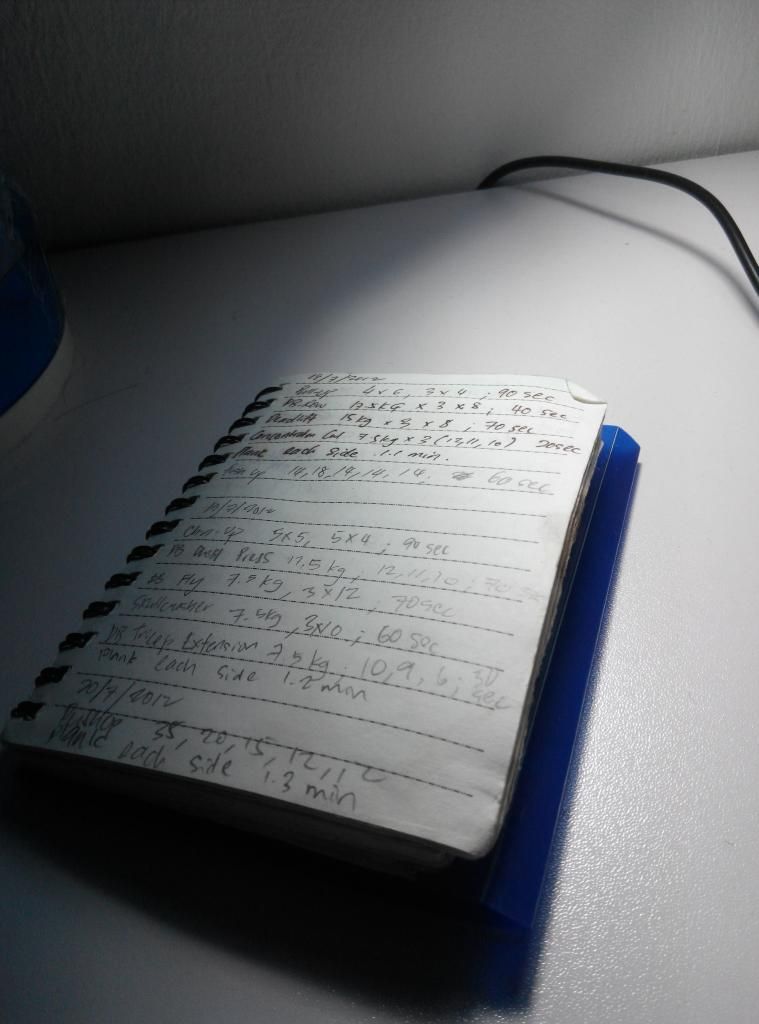 /7/2012
4x6, 3x4 ; 90 sec
DB Row 17.5kg x 3 x 8 ; 40 sec
Deadlift 15kg x 3 x 8 ; 70 sec
Concentration Curl 7.5kg x 3 (12,11,10) 90sec
Plank each side 1.1 min.
Push up 14, 14, 14. 60 sec
/7/2012
Chin-up 5x5, 5x4 ; 90 sec
DB Press 17.5kg ; 12,11,10 ; 70
DB Fly 7.5kg, 3x12 ; 70sec
Skullcrusher 7.5kg, 3x10 ; 60 sec
DB Tricep Extension 7.5kg. 10,9, 6 ; 30 sec
Plank each side 1.2 min
20/7/2012
Push up 35, 20, 15, 12, 12
Plank each side 1.3 min